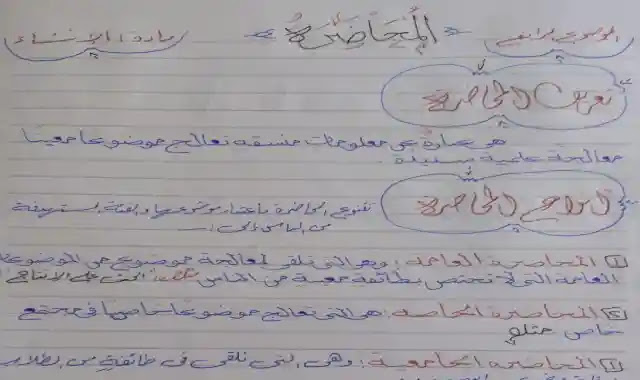 الموضوع الرابع «المُحَاضَرَة» مادة: الإنشاء
تعريف المحاضرة
هو عبارة عن معلومات منسقة تعالج موضوعا معينا
معالجة علمية
أنواع المحاضرة
تتنوع المحاضرة باعتبار موضوعها والفئة المستهدفة
من الناس إلى:
1 المحاضرة العامة: وهي التي تلقى لمعالجة موضوع من الموضوعات
العامة التي لا تختص بطائفة معينة من الناس مثل: الحث على الإنتاج
2 المحاضرة الخاصة: هي التي تعالج موضوعا خاصا في مجتمع
خاص مثل
المحاضرة الجامعية: وهي التي تلقى في طائفة من الطلاب